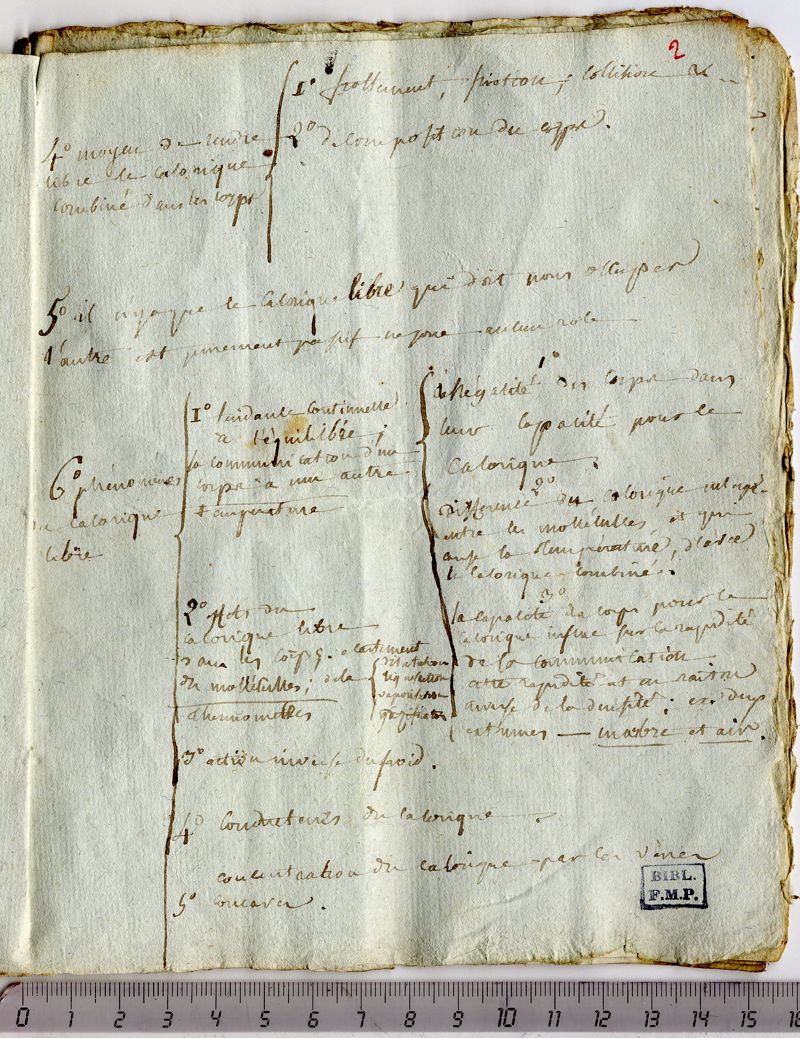 2
1° frottement, friction, collision &c...
2° décomposition du corps.
4° moyen de rendre
libre le calorique
combiné dans les corps
5° il n'y a que le calorique libre qui doit nous occuper
l'autre est purement passif ne joue aucun role
6° phénomènes
du calorique
libre
1° tendante continuelle
à l'équilibre;
sa communication d'un
corps à un autre
température
1°
inégalité des corps dans
leur capacité pour le
calorique.
2°
différence du calorique
entre les mollécules, et qui
la température, d'avec
le calorique combiné.
3°
la capacité des corps pour le
calorique influe sur la rapidité
de la communication
cette rapidité est en raison
inverse de la densité; ex. deux
extrumes — marbre et air.
2° effets du
calorique libre
dans les corps. écartement
des mollécules; de la
dilatation
liquefaction
vaporisation
gazéification
thermomètres
3° action inverse du froid.
4° conducteurs du calorique.
concentration du calorique par les verres
5° concaves.
BIBL.
F.M.P.
0 1 2 3 4 5 6 7 8 9 10 11 12 13 14 15 16